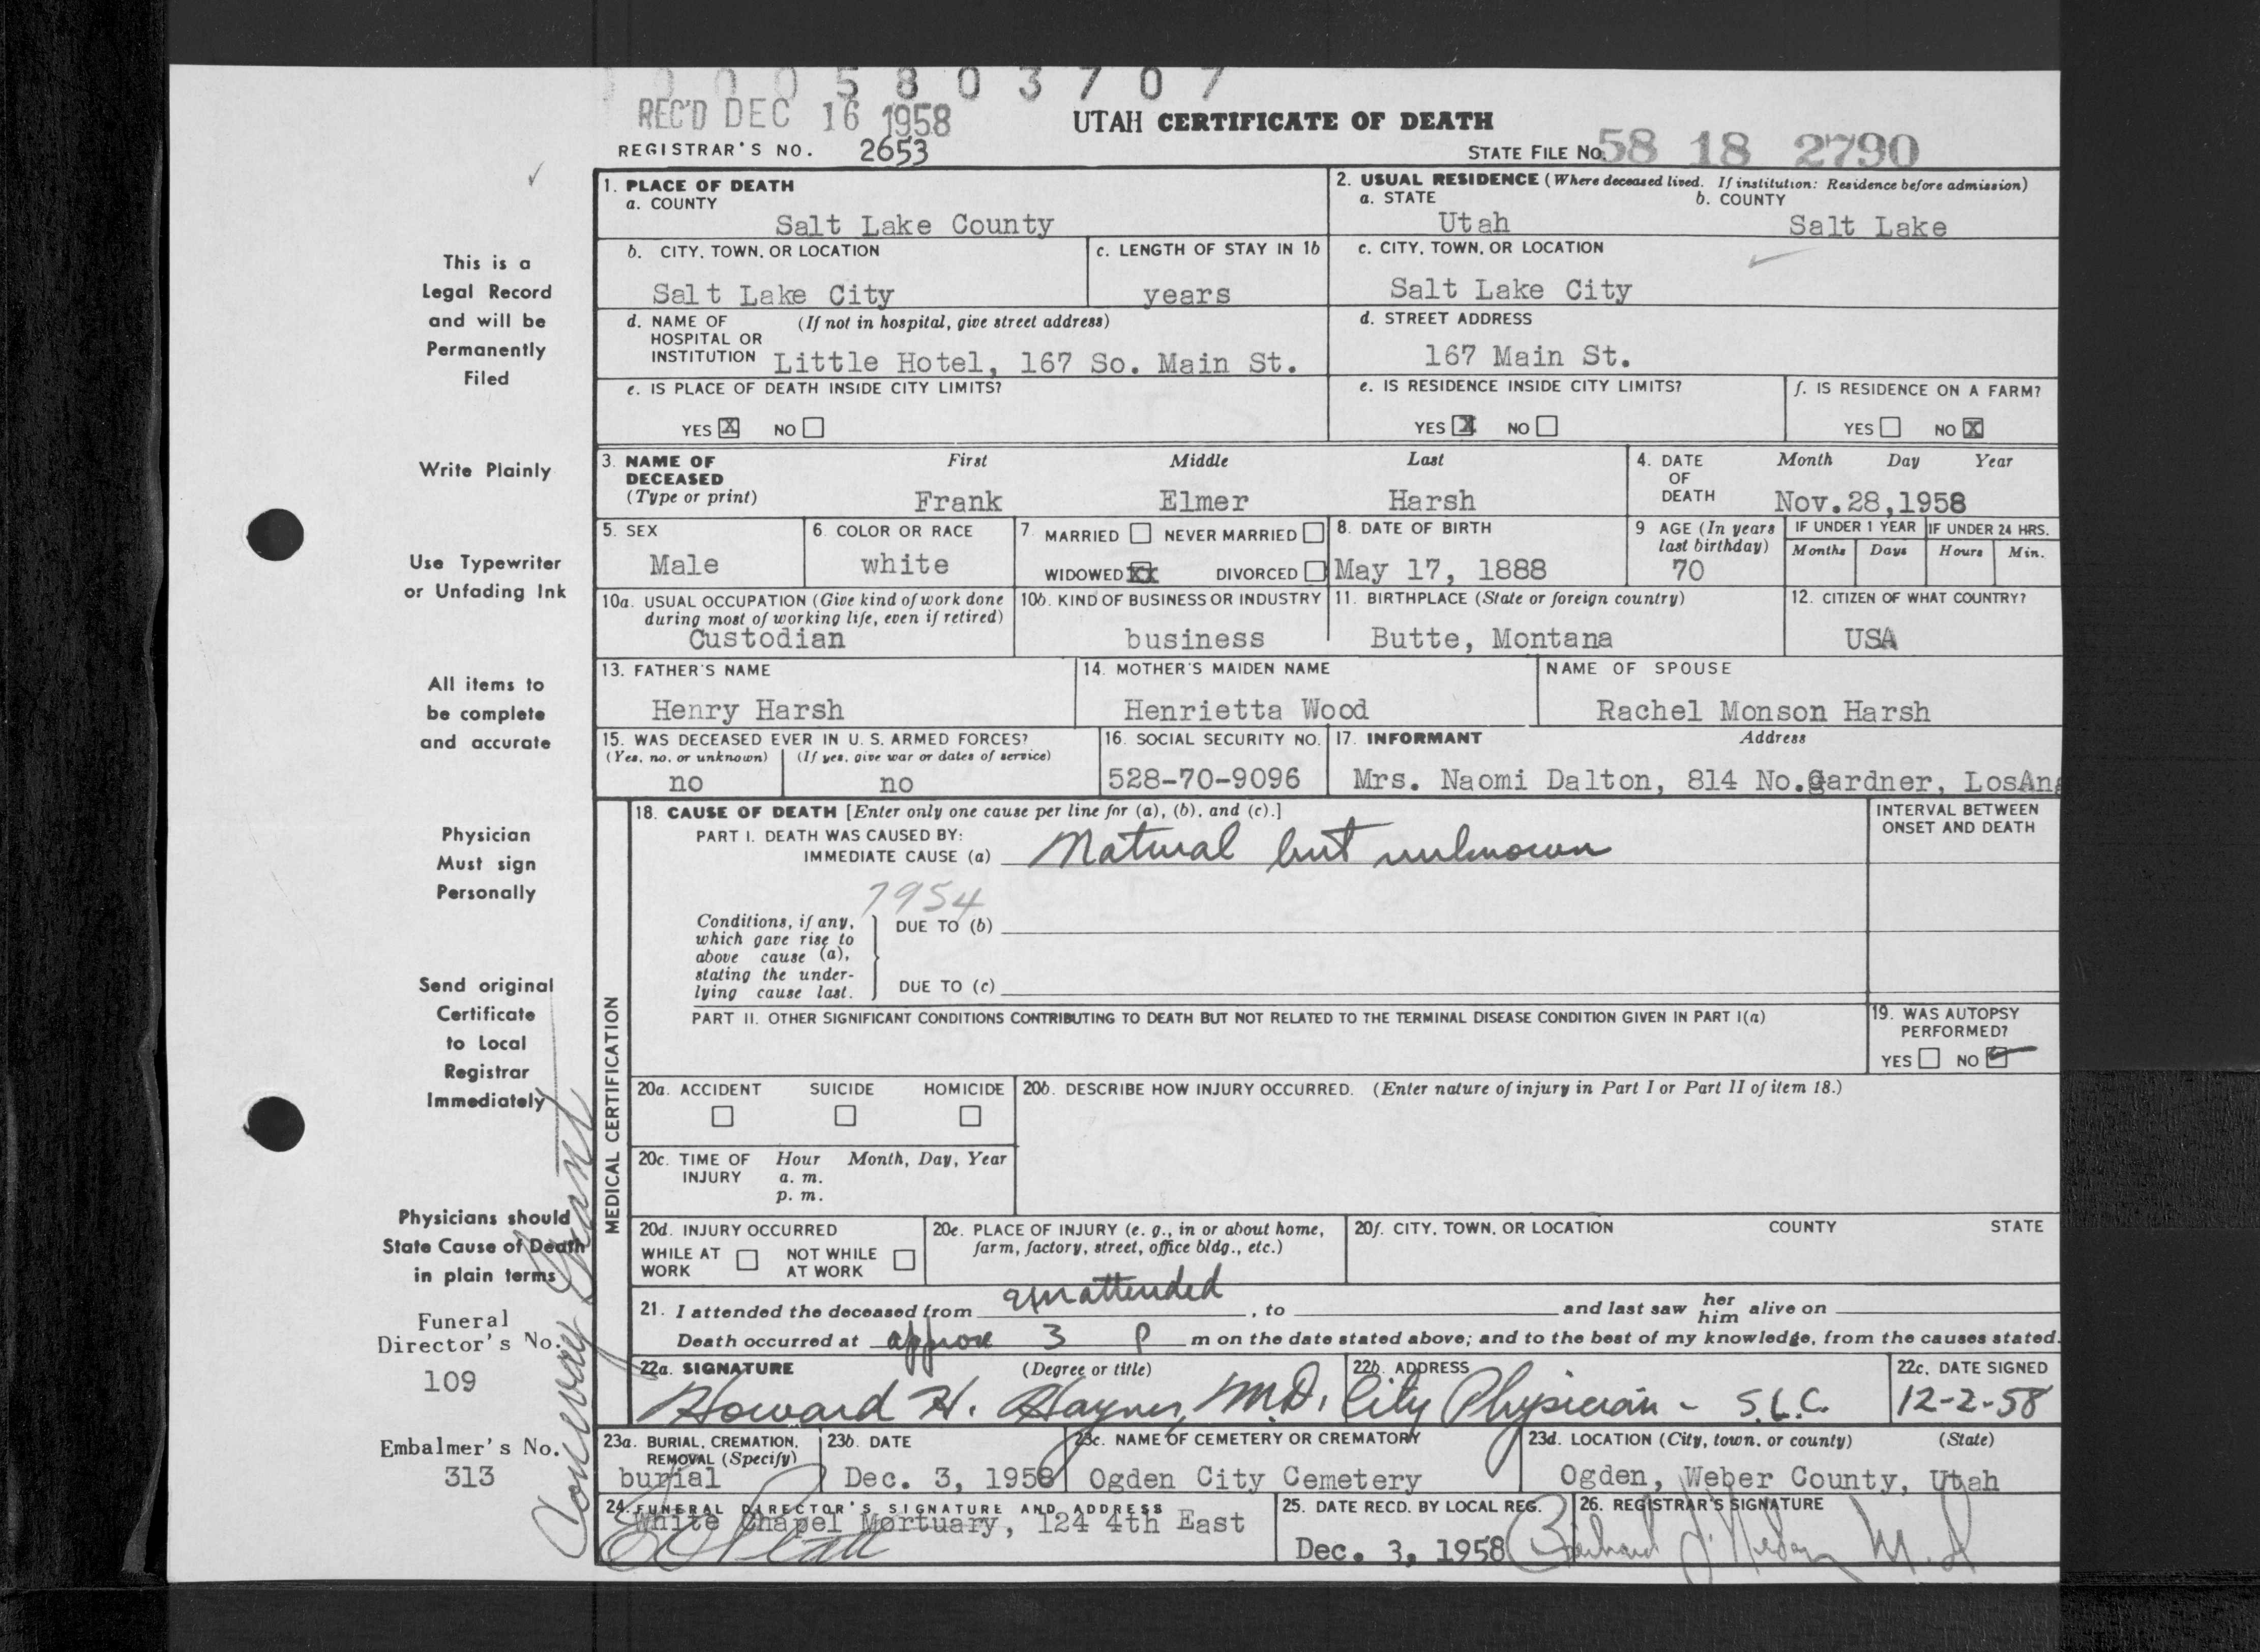 0 0 0 5 8 0 3 7 0 7
REC'D DEC 16 1958
UTAH CERTIFICATE OF DEATH
REGISTRAR'S NO. 2653
STATE FILE NO. 58 18 2790
1. PLACE OF DEATH
a. COUNTY
Salt Lake County
2. USUAL RESIDENCE (Where deceased lived. If institution: Residence before admission)
a. STATE b. COUNTY
Utah Salt Lake
b. CITY, TOWN, OR LOCATION
Salt Lake City
c. LENGTH OF STAY IN 1b
years
c. CITY, TOWN, OR LOCATION
Salt Lake City
d. NAME OF (If not in hospital, give street address)
HOSPITAL OR
INSTITUTION Little Hotel, 167 So. Main St.
d. STREET ADDRESS
167 Main St.
e. IS PLACE OF DEATH INSIDE CITY LIMITS?
YES X NO
e. IS RESIDENCE INSIDE CITY LIMITS?
YES X NO
f. IS RESIDENCE ON A FARM?
YES NO X
3. NAME OF DECEASED (Type or print)
First Middle Last
Frank Elmer Harsh
4. DATE OF DEATH
Month Day Year
Nov.28,1958
5. SEX
Male
6. COLOR OR RACE
white
7. MARRIED NEVER MARRIED
WIDOWED XX DIVORCED
8. DATE OF BIRTH
May 17, 1888
9 AGE (In years last birthday)
70
IF UNDER 1 YEAR IF UNDER 24 HRS.
Months Days Hours Min.
10a. USUAL OCCUPATION (Give kind of work done during most of working life, even if retired)
Custodian
10b. KIND OF BUSINESS OR INDUSTRY
business
11. BIRTHPLACE (State or foreign country)
Butte, Montana
12. CITIZEN OF WHAT COUNTRY?
USA
13. FATHER'S NAME
Henry Harsh
14. MOTHER'S MAIDEN NAME
Henrietta Wood
NAME OF SPOUSE
Rachel Monson Harsh
15. WAS DECEASED EVER IN U. S. ARMED FORCES?
(Yes, no, or unknown) (If yes, give war or dates of service)
no no
16. SOCIAL SECURITY NO.
528-70-9096
17. INFORMANT Address
Mrs. Naomi Dalton, 814 No.Gardner, LosAng
MEDICAL CERTIFICATION
18. CAUSE OF DEATH [Enter only one cause per line for (a), (b), and (c).]
PART I. DEATH WAS CAUSED BY:
IMMEDIATE CAUSE (a) Natural but unknown
7954
Conditions, if any, which gave rise to above cause (a), stating the underlying cause last.
DUE TO (b)
DUE TO (c)
INTERVAL BETWEEN
ONSET AND DEATH
PART II. OTHER SIGNIFICANT CONDITIONS CONTRIBUTING TO DEATH BUT NOT RELATED TO THE TERMINAL DISEASE CONDITION GIVEN IN PART I(a)
19. WAS AUTOPSY
PERFORMED?
YES NO
20a. ACCIDENT SUICIDE HOMICIDE
20b. DESCRIBE HOW INJURY OCCURRED. (Enter nature of injury in Part I or Part II of item 18.)
20c. TIME OF INJURY
Hour Month, Day, Year
a. m.
p. m.
20d. INJURY OCCURRED
WHILE AT WORK NOT WHILE AT WORK
20e. PLACE OF INJURY (e. g., in or about home, farm, factory, street, office bldg., etc.)
20f. CITY, TOWN, OR LOCATION COUNTY STATE
21. I attended the deceased from unattended, to and last saw her him alive on
Death occurred at approx 3 P m on the date stated above; and to the best of my knowledge, from the causes stated.
22a. SIGNATURE (Degree or title)
Howard H. Haynes, M.D.
22b. ADDRESS
City Physician - S.L.C.
22c. DATE SIGNED
12-2-58
23a. BURIAL, CREMATION, REMOVAL (Specify)
burial
23b. DATE
Dec. 3, 1958
23c. NAME OF CEMETERY OR CREMATORY
Ogden City Cemetery
23d. LOCATION (City, town, or county) (State)
Ogden, Weber County, Utah
24. FUNERAL DIRECTOR'S SIGNATURE AND ADDRESS
White Chapel Mortuary, 124 4th East
25. DATE RECD. BY LOCAL REG.
Dec. 3, 1958
26. REGISTRAR'S SIGNATURE
M.D
This is a
Legal Record
and will be
Permanently
Filed
Write Plainly
Use Typewriter
or Unfading Ink
All items to
be complete
and accurate
Physician
Must sign
Personally
Send original
Certificate
to Local
Registrar
Immediately
Physicians should
State Cause of Death
in plain terms
Funeral
Director's No.
109
Embalmer's No.
313